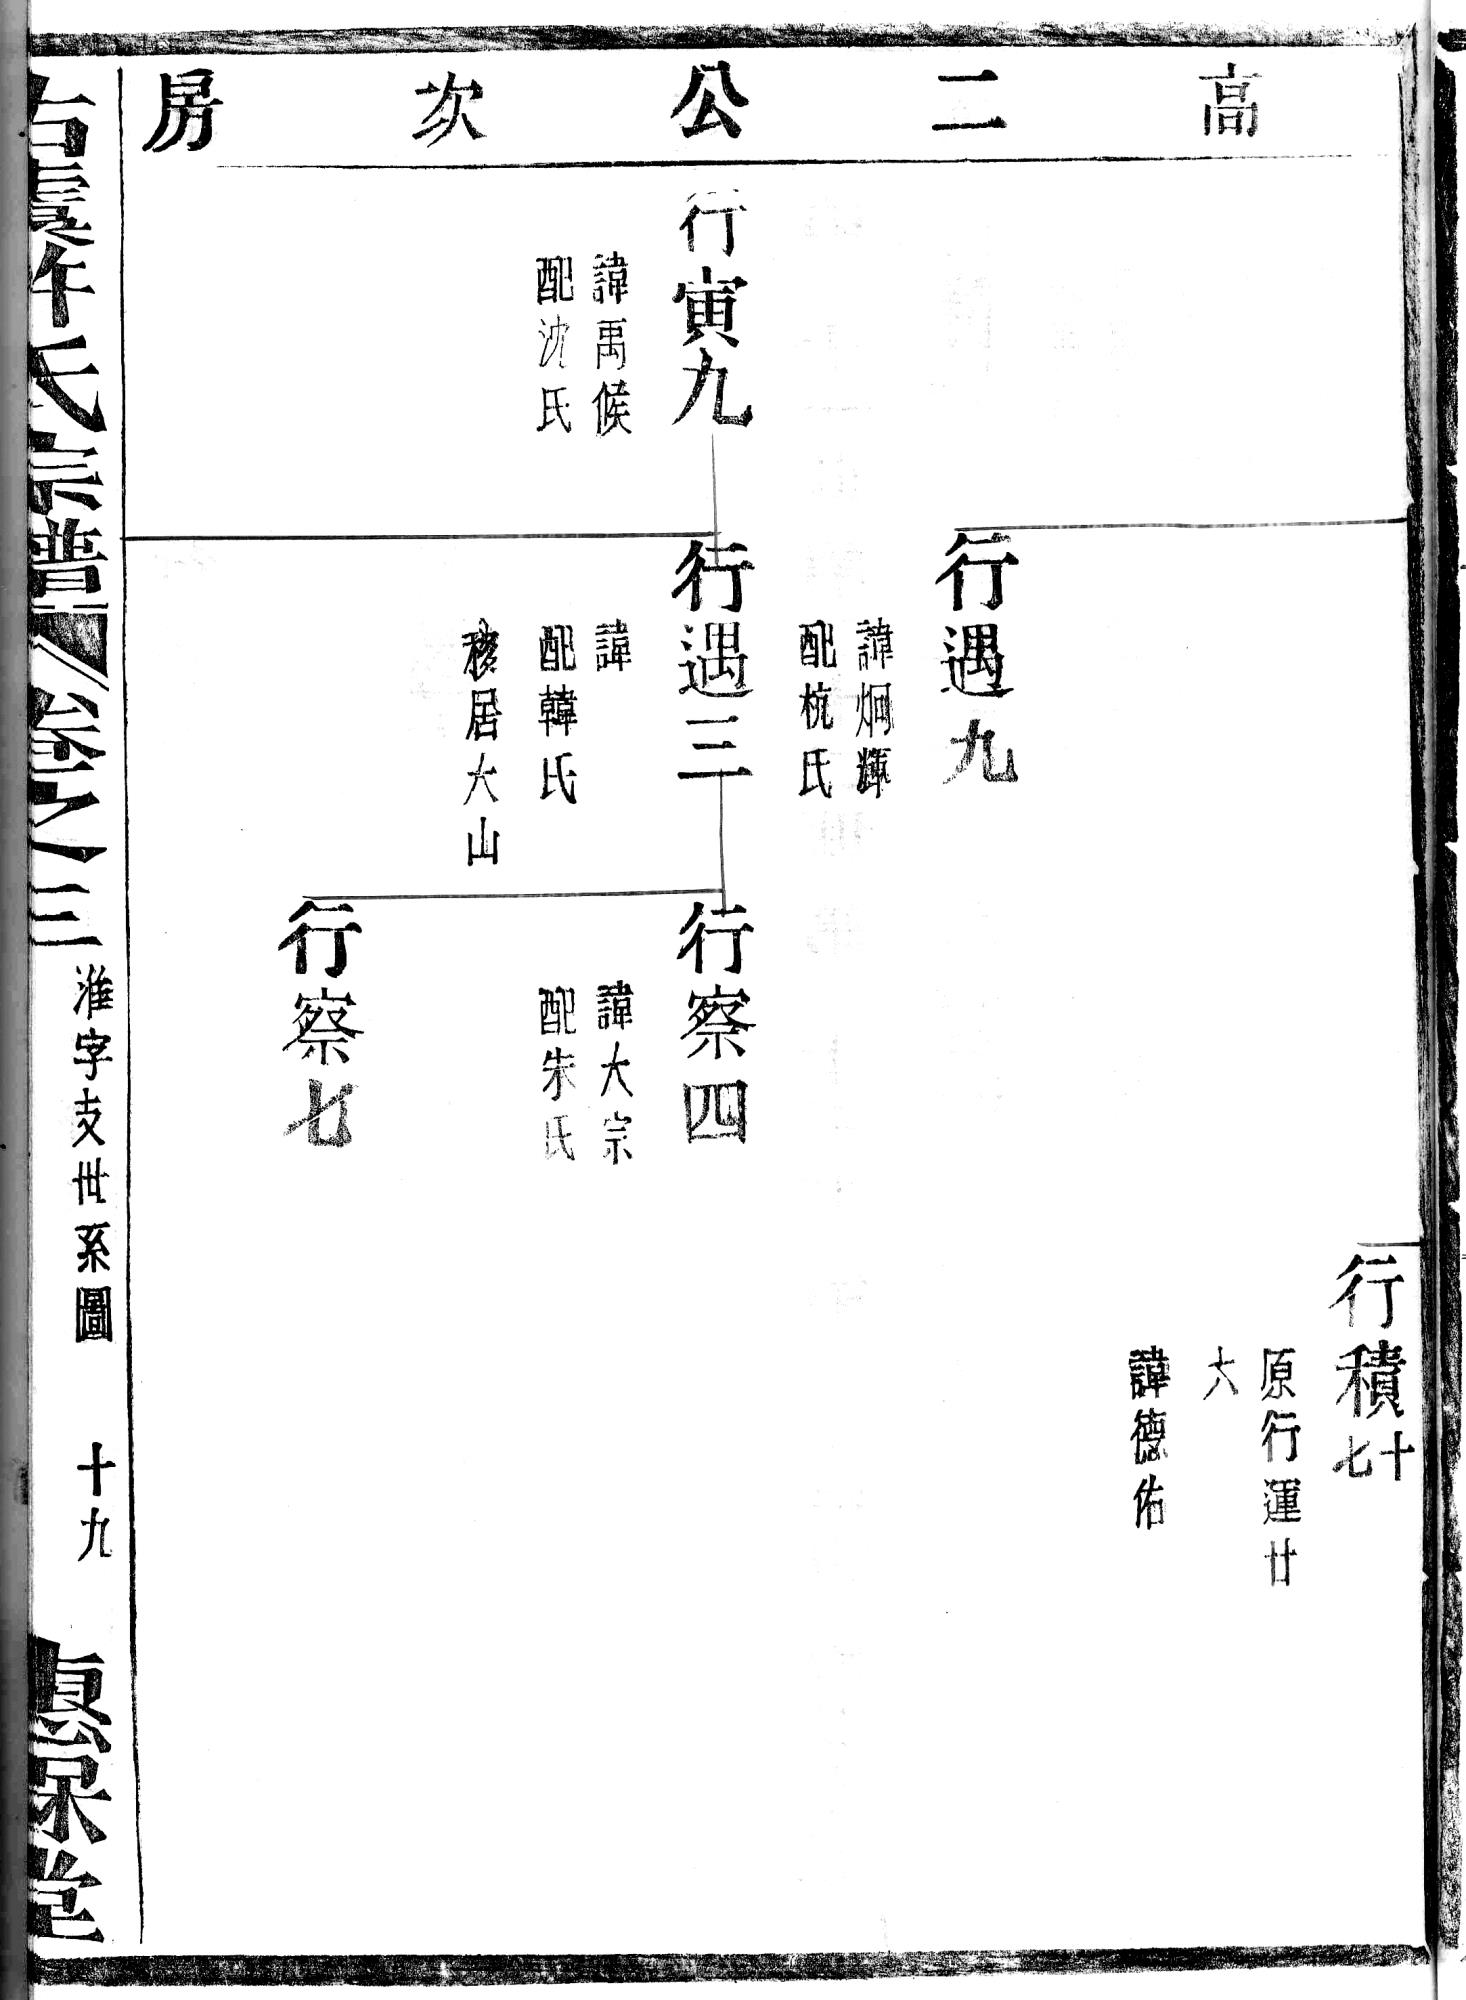 高二公次房
行積十七
原行運廿
六
諱德佑
行遇九
諱炯輝
配杭氏
行寅九
諱禹候
配沈氏
行遇三
諱
配韓氏
移居大山
行察四
諱大宗
配朱氏
行察七
古虞許氏宗譜
卷之三
淮字支世系圖
十九
惠保堂